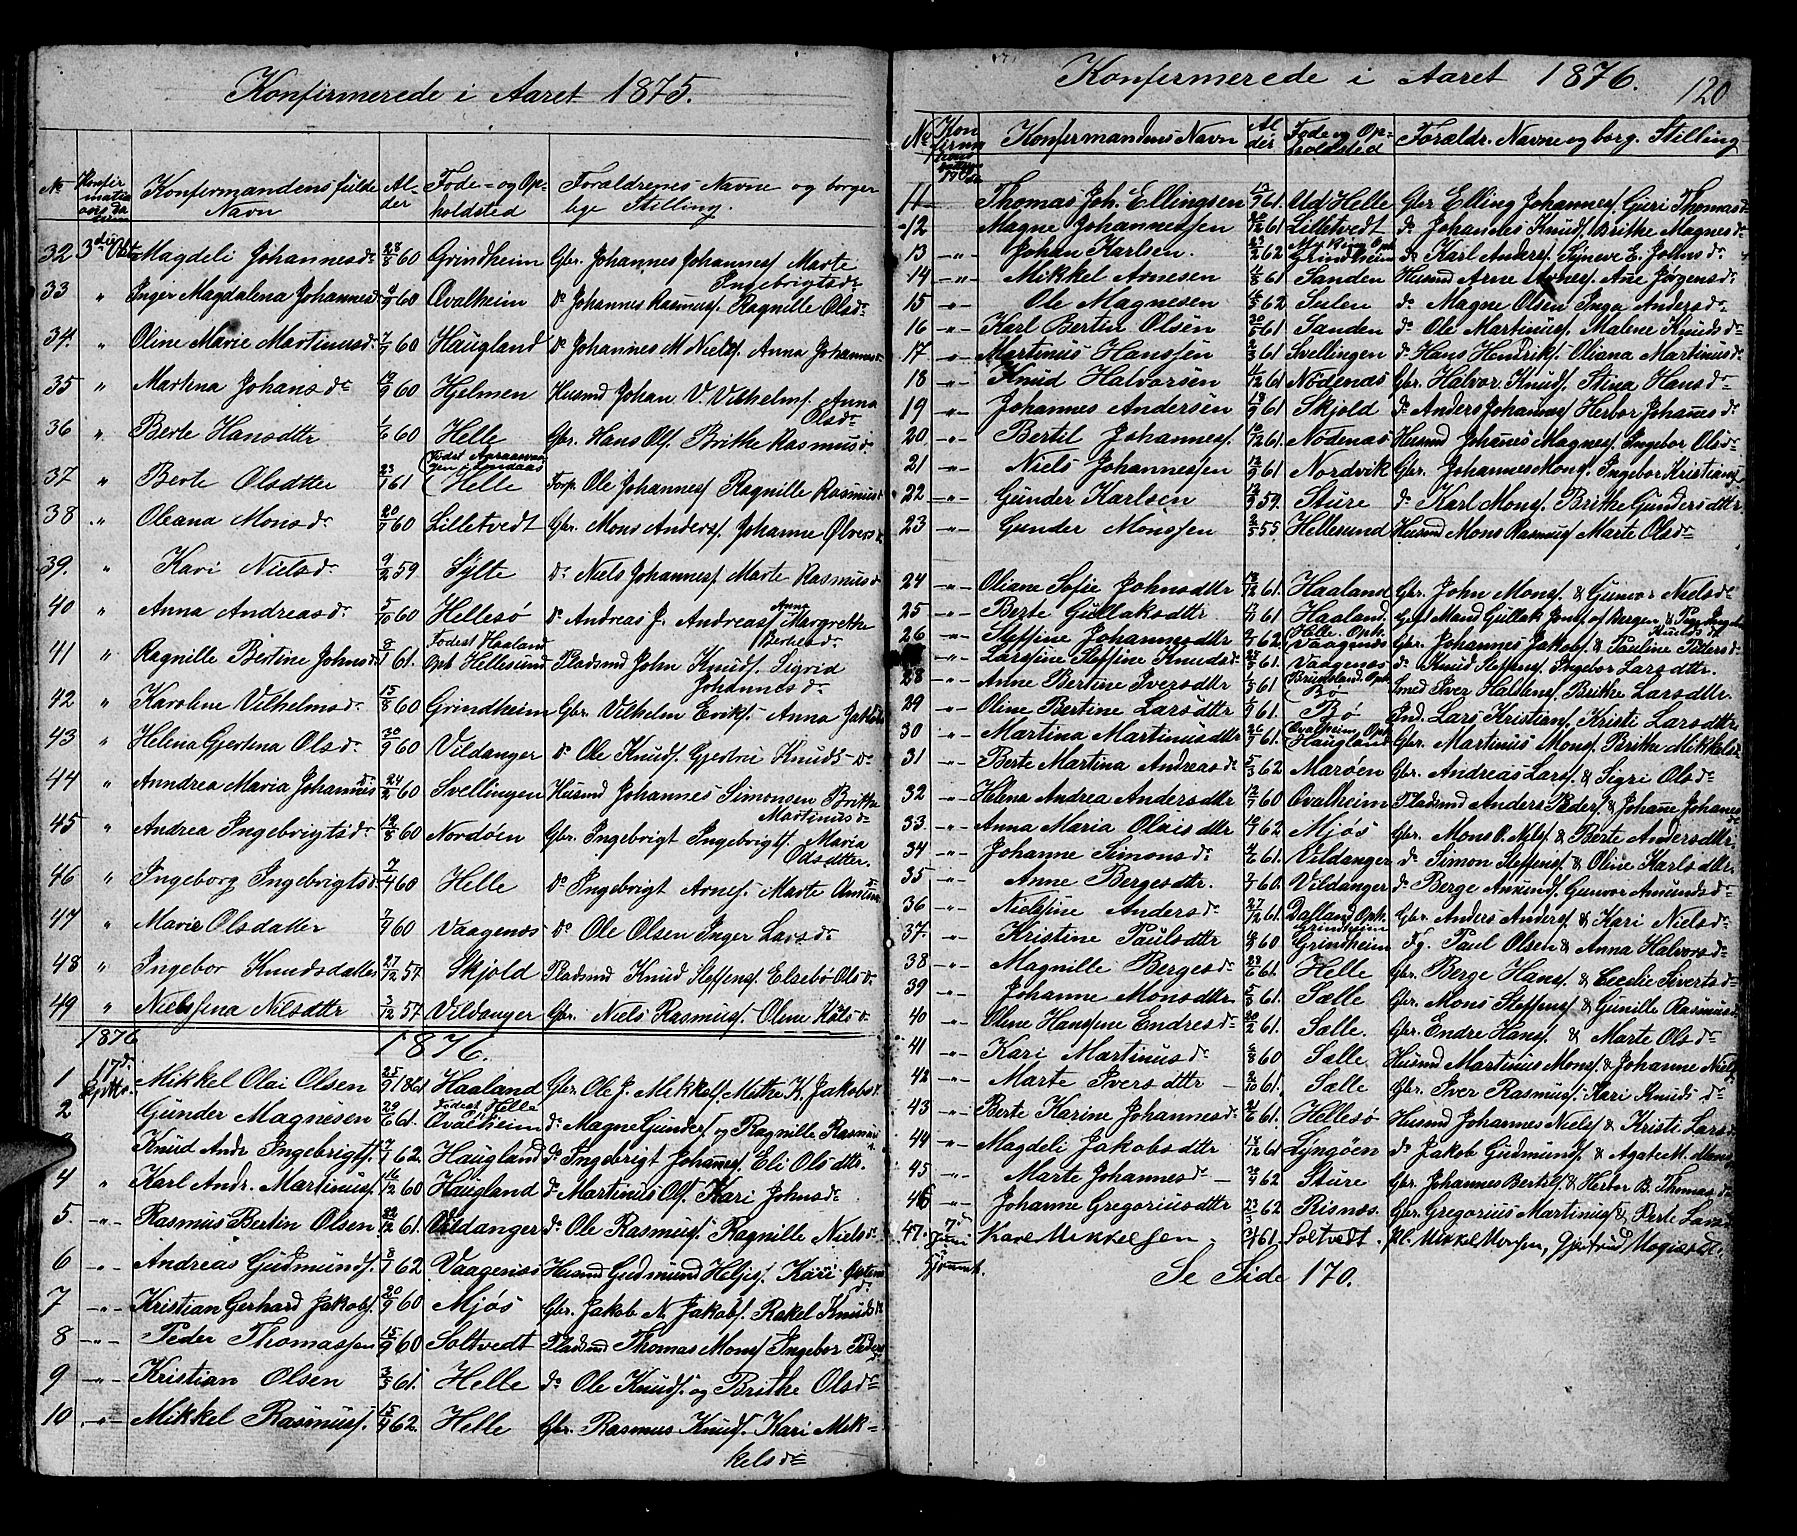 Konfirmerede i Aaret 1875.
No Konfirmationens Datum Konfirmandens fulde Navn Alder Føde- og Opholdsted Forældrenes Navne og borgerlige Stilling.
32 3die Oktb Magdeli Johannesdr 28/8 60 Grindheim Gbr. Johannes Johannesf Marte Ingebrigtsdr
33 " Inger Magdalena Johannesd 4/9 60 Ovalheim do Johannes Rasmusf. Ragnille Olsdr
34. " Oline Marie Martinusd. 7/9 60 Haugland do Johannes M Nielsf. Anna Johannesd
35 " Martina Johansdr 19/9 60 Hjelmen Husmd Johan V. Vilhelmf. Anna Olsdr
36 " Berte Hansdttr 1/6 60 Helle Gbr. Hans Olf. Brithe Rasmusd.
37 " Berte Olsdtter 23/1 61 Helle Forp. Ole Johannesf Ragnille Rasmusd
38 " Oleana Monsdr 20/9 60 Lilletvedt Gbr. Mons Andersf. Johanne Olversd
39. " Kari Nielsdr 9/2 59 Sylte do Niels Johannesf Marte Rasmusd
40 " Anna Andreasdr 5/10 60 Hellesø do Andreas J. Andreasf Anne Margrethe Bertelsdr
41 " Ragnille Bertine Johnsd 8/1 61. Fødest Haaland Oph Hellesund Pladsmd John Knudf. Sigrid Johannesdr
42 " Karoline Vilhelmsd. 15/8 60 Grindheim Gbr. Vilhelm Erikf. Anna Jakobsd
43 " Helena Gjertina Olsdr 30/9 60 Vildanger do Ole Knudf. Gjertrui Knudsdr
44 " Anndrea Maria Johannesd 24/2 60 Svellingen Husmd Johannes Simonsen Britha Martinusdr
45 " Andrea Ingebrigtsdr 19/8 60 Nordøen Gbr. Ingebrigt Ingebrigtf. Maria Olsdtter.
46 " Ingeborg Ingebrigtsd. 7/4 60 Helle do Ingebrigt Arnef. Marte
47 " Marie Olsdatter 7/9 60 Vaagenæs do Ole Olsen Inger Larsdr
48 " Ingebor Knudsdatter 27/12 57 Skjold Pladsmd Knud Steffensf. Elsebø Olsdr
49 " Nielsina Nilsdttr 3/12 57 Vildanger Gbr. Niels Rasmusf. Olene
1876 1876.
1 17d Sptbr. Mikkel Olai Olsen 25/9 1861 Haaland Gbr. Ole J. Mikkelf Mithe K. Jakobsd.
2 Gunder Magnesen 29/6 61. Fødest Helle Ovalheim do Magne Gunderf og Ragnille Rasmusd
Knud Andr. Ingebrigtf. 17/7 62. Haugland do Ingebrigt Johannesf Eli Olsdttr.
4 " Karl Andr. Martinusf. 16/12 60 Haugland do Martinus Olf. Kari Johnsdr
5. -"- Rasmus Bertin Olsen 22/12 61. Vildanger do Ole Rasmusf. Ragnille Nielsdr
6 -"- Andreas Gudmundf. 8/7 62 Vaagenæs Husmd Gudmund Heljesf. Kari
7 -"- Kristian Gerhard Jakobf. 20/9 60 Mjøs Gbr. Jakob N. Jakobf. Rakel Knudsdr
8 -"- Peder Thomassen 15/9 60 Soltvedt Pladsmd Thomas Monsf Ingebor Pedersd
9 -"- Kristian Olsen 3/5 61. Helle do Ole Knudf. og Brithe Olsdr
10 -"- Mikkel Rasmusf. 15/4 62. Helle Gbr. Rasmus Knudf. Kari Mikkelsdr

Konfermerede i Aaret 1876. 120
No Konfermandens Navn Alder Føde og Opholdsted Forældr. Navne og borg. Stilling
11 Thomas Joh. Ellingsen 61. Ud Helle Gbr Elling Johannesf. Guri Thomasd
12 Magne Johannessen 61 Lilletvedt do Johannes Knudf, Brithe Magnesdr
13 -"- Johan Karlsen. 62 Grindheim do Karl Andersf. Syneve E. Johnsdr
14 -"- Mikkel Arnesen 61 Sanden Husmd Arne Arnesf. Ane Jørgensdr
15 -"- Ole Magnesen 62 Selen do Magne Olsen Inga Andersdr
16 -"- Karl Bertin Olsen 61 Sanden do Ole Martinusf. Malene Knudsdr
17 -"- Martinus Hanssen 61 Svellingen do Hans Henrikf. Oliana Martinusdr
18 -"- Knud Halvorsen 61 Nødenæs Gbr. Halvor Knudf. Stina Hansdr
19 -"- Johannes Andersen 61 Skjold do Anders Johannesf Herbor Johannesdr
20 -"- Bertil Johannesf. 61. Nødenæs Husmd Johannes Magnesf. Ingebor Olsdr
21 -"- Niels Johannessen 61 Nordvik Gbr. Johannes Monsf. Ingebor Kristiansd
22 -"- Gunder Karlsen 59. Sture do Karl Monsf. Brithe Gundersdttr.
23 -"- Gunder Monssen 55 Hellesund Husmd Mons Rasmusf Marte Olsdr
24 -"- Oliane Sofie Johnsdttr 61. Haaland Gbr. John Monsf. & Gunvor Nielsdr
25 -"- Berte Gullaksdttr 61 Haaland
26 -"- Steffine Johannesdttr 62 Helle Oph. Vaagenæs Gbr. Johannes Jakobf & Pauline Pedersdr
-"- Larssine Steffine Knudsdr 61. Vaagenæs do Knud Steffensf. Ingebor Larsdttr.
28 -"- Anne Bertine Iversdttr 61 Bø Smed Iver Haldensf. Brithe Larsdttr.
29 -"- Oline Bertine Larsdttr 61. Bø Ind. Lars Kristianf. Kristi Larsdttr
30 -"- Martina Martinusdttr 61. Ovalheim Oph Haugland Gbr. Martinus Monsf. Brithe Mikkelsdr
31 -"- Berte Martina Andreasdr 5/3 62 Marøen Gbr. Andreas Larsf & Sigri Olsdr
32 -"- Helena Andrea Andersdttr 60 Ovalheim Pladsmd Anders Pedersf. & Johane Johanesdr
33. -"- Anna Maria Olaisdttr 62 Mjøs Gbr. Mons O. Nilsf. & Berte Andersdttr.
34 -"- Johanne Simonsdr 61. Vildanger do Simon Steffensf. & Oline Karlsdttr.
35 -"- Anne Bergesdttr. 60. Vildanger do Berge Amundf. Gunvor Amundsdr
36 -"- Nielsine Andersdr 27/12 61. Dalland Oph. Grindheim Gbr. Anders Andersf & Kari Nielsdr
37. -"- Kristine Paulsdttr 60 Grindheim Fg. Paul Olsen & Anna Halvorsdr
38 -"- Magnille Bergesdr 61. Helle Gbr. Berge Hansf. & Cecelie Sivertsdr
39 -"- Johanne Monsdttr 61. Sælle Gbr. Mons Steffensf. & Gunille Rasmusd
40 -"- Olene Hanssine Endresdr 61. Sælle. Gbr. Endre Hansf. & Marte Olsdr
41 -"- Kari Martinusdr 60 Sælle Husmd Martinus Monsf. & Johanne Nielsd
42 -"- Marte Iversdttr 61. Sælle Gbr. Iver Rasmusf. Kari Knudsdr
43 -"- Berte Karine Johannesdr 61. Hellesø Husmd Johannes Nielsf & Kristi Larsd
44 -"- Magdeli Jakobsdttr 61 Lyngøen do Jakob Gudmundf. & Agate M.
45 -"- Marte Johannesdr 62 Sture Gbr. Johannes Bertelf. & Herbor B. Thomasd.
46 -"- Johanne Gregoriusdttr 23/3 62 Risnæs. Gbr. Gregorius Martinusf & Berte Larsd
47. 7 Juni Kare Mikkelsen. 61. Soltvedt. Mikkel Monsen, Gjertrud
Se Side 170.